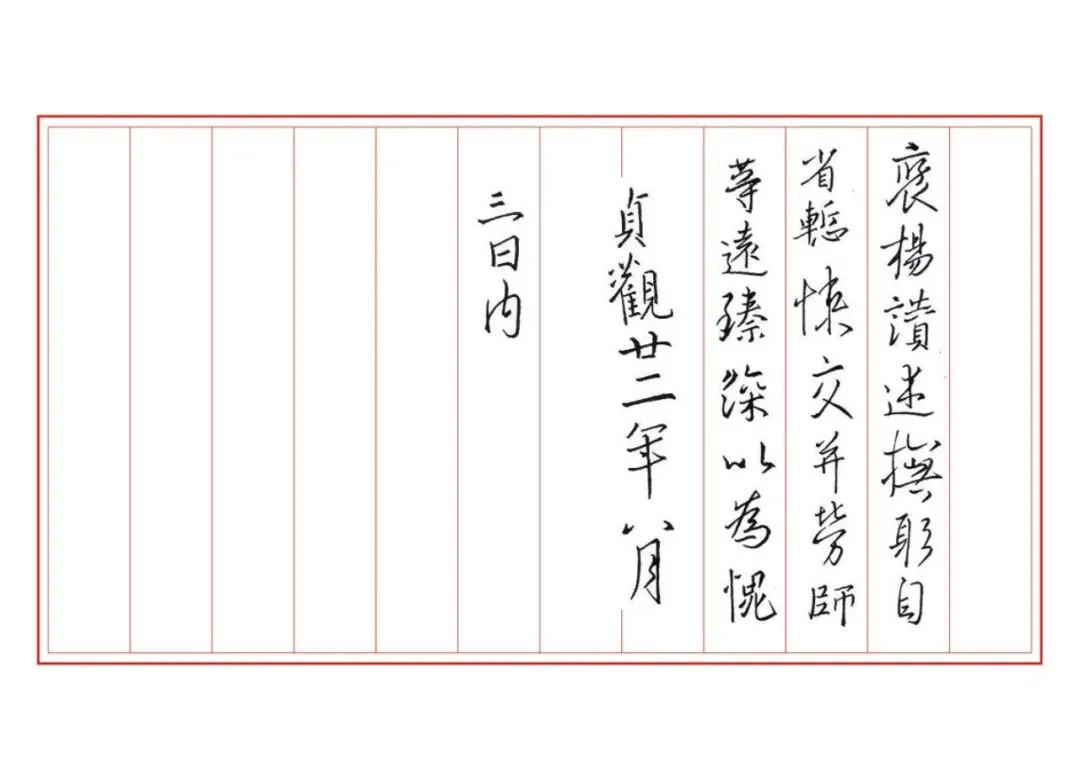 褒楊讚述撫躬自
省慙悚交并勞師
等遠臻深以為愧
貞觀廿二年八月
三日内